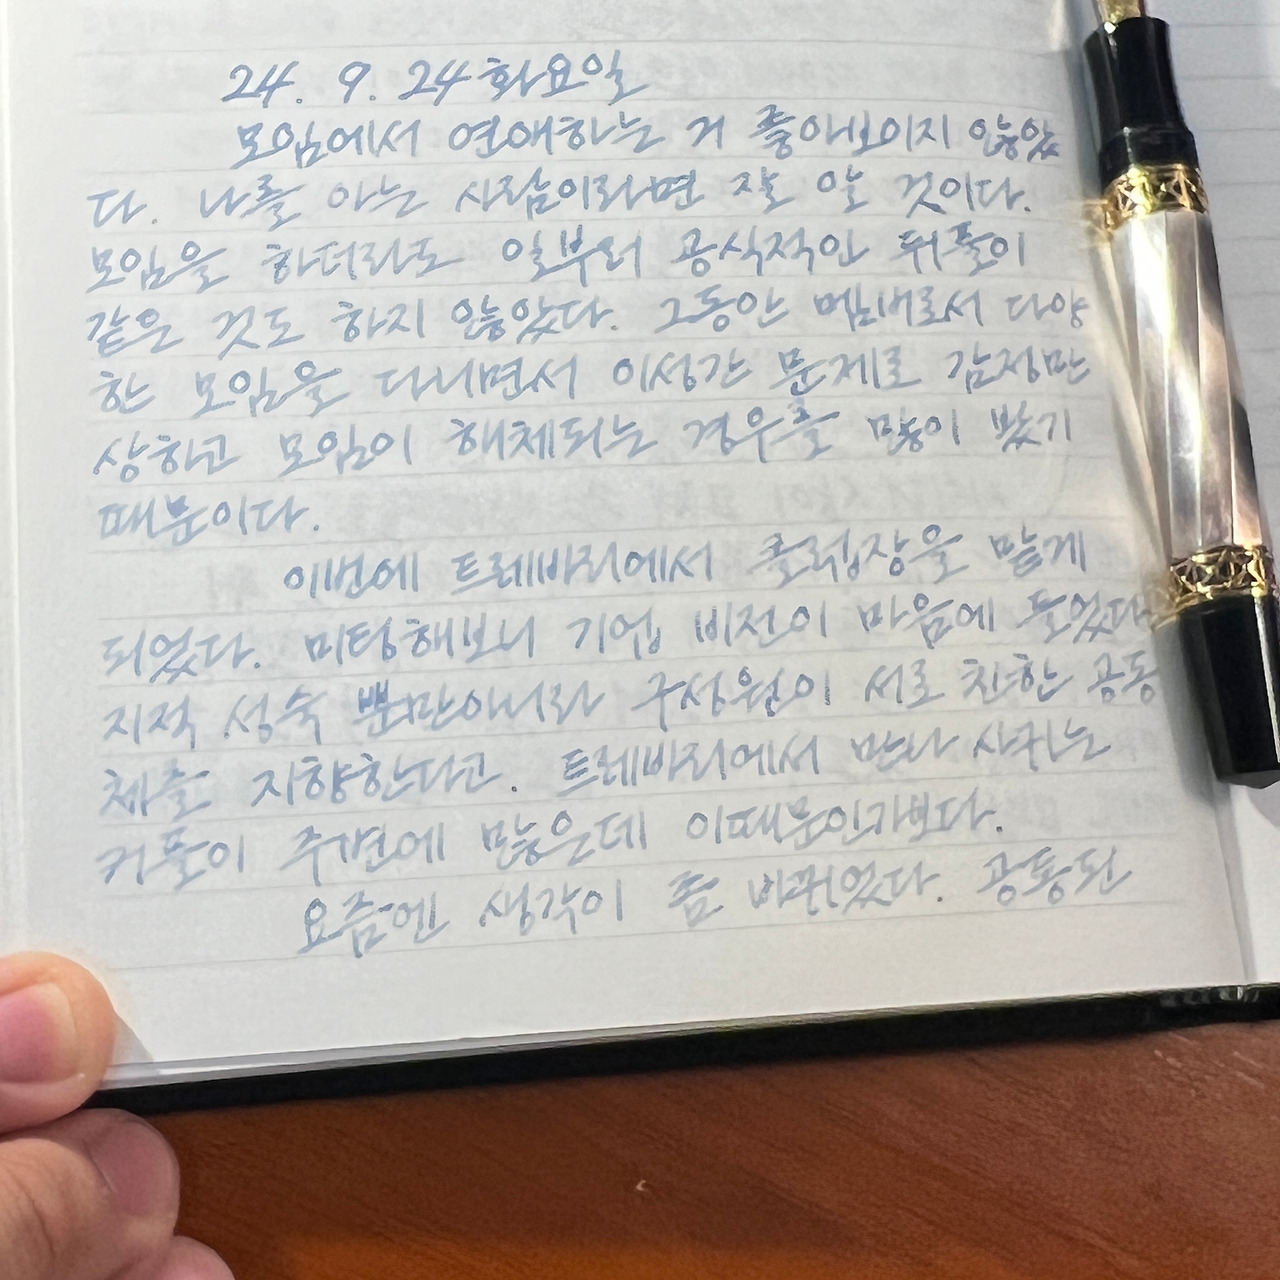 24. 9. 24 화요일
모임에서 연애하는 거 좋아보이지 않았
다. 나를 아는 사람이라면 잘 알 것이다.
모임을 하더라도 일부러 공식적인 뒤풀이
같은 것도 하지 않았다. 그동안 멤버로서 다양
한 모임을 다니면서 이성간 문제로 감정만
상하고 모임이 해체되는 경우를 많이 봤기
때문이다.
이번에 트레바리에서 클럽장을 맡게
되었다. 미팅해보니 기업 비전이 마음에 들었다.
지적 성숙 뿐만아니라 구성원이 서로 친한 공동
체를 지향한다고. 트레바리에서 만나 사귀는
커플이 주변에 많은데 이때문인가보다.
요즘엔 생각이 좀 바뀌었다. 공통된